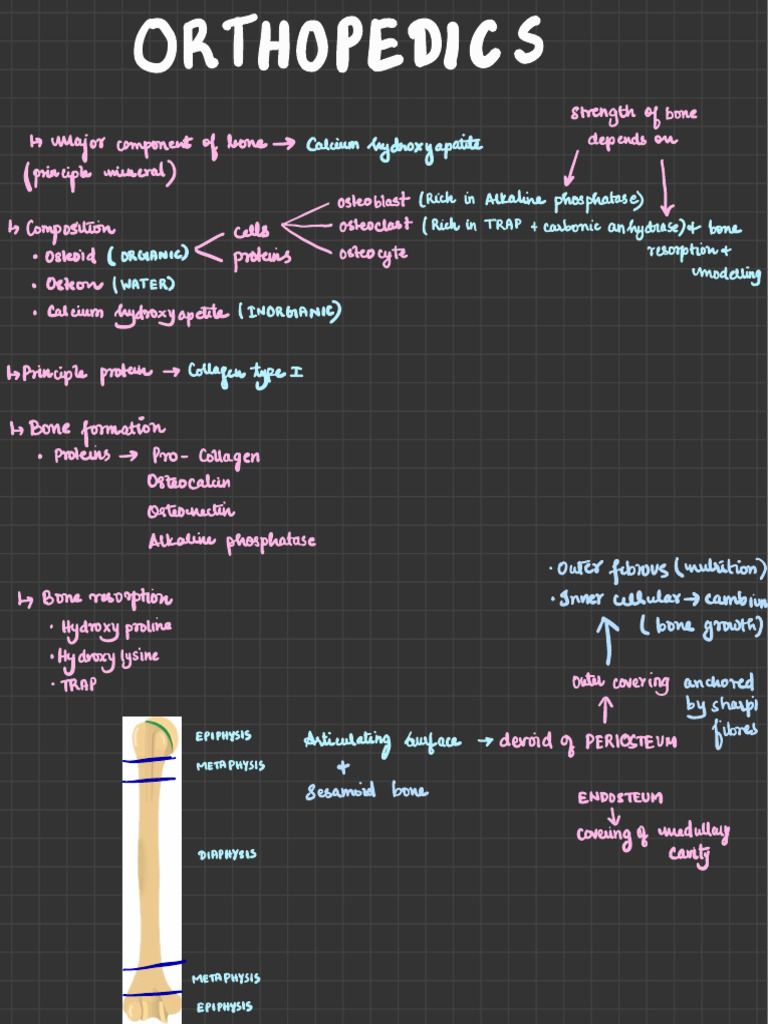 ORTHOPEDICS
Strength of bone
depends on
↳ Major component of bone → Calcium hydroxyapatite
(principle mineral)
osteoblast (Rich in Alkaline phosphatase)
↳ Composition
cells
osteoclast (Rich in TRAP + carbonic anhydrase) & bone
resorption +
modelling
• Osteoid (ORGANIC)
proteins
osteocyte
• Osteon (WATER)
• Calcium hydroxyapetite (INORGANIC)
↳ Principle protein → Collagen type I
↳ Bone formation
• Proteins → Pro-Collagen
Osteocalcin
Osteonectin
Alkaline phosphatase
• Outer fibrous (nutrition)
• Inner cellular → cambium
(bone growth)
↳ Bone resorption
• Hydroxy proline
• Hydroxy lysine
• TRAP
Outer covering anchored
by sharpi
fibres
EPIPHYSIS
Articulating surface → devoid of PERIOSTEUM
METAPHYSIS
+
Sesamoid bone
ENDOSTEUM
↓
covering of medullary
cavity
DIAPHYSIS
METAPHYSIS
EPIPHYSIS